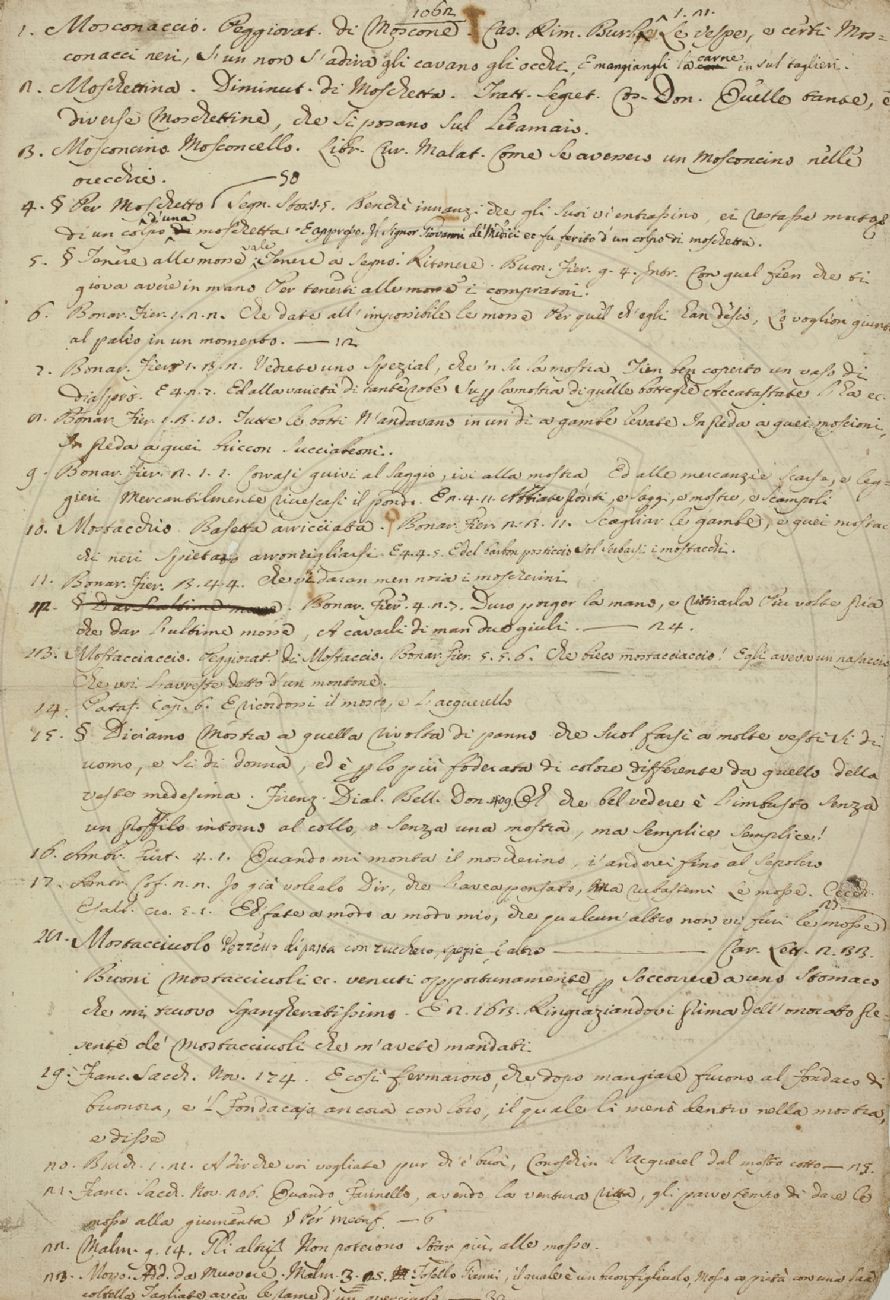 1062
1. Mosconaccio. Peggiorat. di Moscone. Cas. Rim. Burl. 1. 21. Le vespe, e certi Mos=
conacci neri, S'un non s'adira gli cavano gli occhi, E mangiangli la carne in sul taglieri.
2. Moschettina. Diminut. di Moschetta. Tratt. Segret. Cos. Don. Quelle tante, e
diverse Moschettine, che si posano sul Letamaio.
3. Mosconcino. Mosconcello. Libr. Cur. Malat. Come se avessero un mosconcino nelle
orecchie.
4. § Per Moschetto 50 Segn. Stor. Benchè innanzi che gli suoi vi entrassino, ei restasse morto
di un colpo d'una moschetta. E appresso. Il Signor Giovanni de' Medici ec. fu ferito d'un colpo di moschetta.
5. § Tenere alle mosse vale Tenere a segno. Ritenere. Buon. Fier. 4. Intr. Con quel fren che ti
giova avere in mano Per tenerti alle mosse i compratori.
6. Bonar. Fier. 1. 2. 2. Che date all'impossibile le mosse Per quel ch'egli han desio, Lo voglion giunto
al palio in un momento. — 12
7. Bonar. Fier. 1. 3. 2. Vedrete uno Spezial, che 'n su la mostra Tien ben coperto un vaso di
diaspro. E 4. 2. 7. Ed alla varietà di tante robe Su per la mostra di quelle botteghe Accatastate
8. Bonar. Fier. 1. 3. 10. Tutte le botti N'andavano in un dì a gambe levate In preda a quei moscioni,
In preda a quei briccon succiatori.
9. Bonar. Fier. 2. 1. 1. Corrasi quivi al saggio, ivi alla mostra Ed alle mercanzie scarse, e leg-
gieri Mercantilmente E 2. 4. 11. e saggi, e mostre, e scampoli
10. Mostacchio. Basetta arricciata. Bonar. Fier. 2. 3. 11. Scagliar le gambe, e quei mostac
chi neri Spietato arronzigliarsi. E 4. 4. 5. Ed el barbon posticcio Sol i mostacchi.
11. Bonar. Fier. 3. 4. 4. Che vi daran men noia i moscherini
12. § Dar l'ultime mosse. Bonar. Fier. 4. 2. 7. Duro porger la mano, e ritirarla Più volte pria
che dar l'ultime mosse, A cavarli di man due giuli. — 24.
13. Mostacciaccio. Peggiorat. di Mostaccio. Bonar. Fier. 5. 5. 6. Che bieco mostacciaccio! Egli aveva un nasaccio
Che voi l'avreste detto d'un montone.
14. Pataf. Cap. 6. E ricordomi il mosto, e l'acquerello
15. § Diciamo Mostra a quella rivolta di panno che suol farsi a molte vesti sì di
uomo, e sì di donna, ed è per lo più foderata di colore differente da quello della
veste medesima. Firenz. Dial. Bell. Don. 409. Oh che bel vedere è l'imbusto senza
un stoffilo intorno al collo, e senza una mostra, ma semplice semplice!
16. Ambr. Furt. 4. 1. Quando mi monta il moscherino, i' anderei fino al Sepolcro
17. Ambr. Cof. 2. 2. Io già volealo Dir, che l'avea pensato, Ma rubastemi Le mosse. Cecch.
Esalt. cr. 5. 1. E fate a modo a modo mio, che qualcun'altro non vi furi le mosse
Mostacciuolo Pezzetto di pasta con zucchero, spezie, e altro — Car. Lett. 2. 33.
Buoni mostacciuoli ec. venuti opportunamente per soccorrere a uno stomaco
che mi truovo sgangheratissimo. E 2. 163. Ringraziandovi prima dell'onorato pre-
sente de' mostacciuoli che m'avete mandati
19. Franc. Sacch. Nov. 174. E così fermarono, che dopo mangiare furono al fondaco di
buonora, e 'l Fondacajo ancora con loro, il quale li menò dentro nella mostra,
e disse
20. Burch. 1. 21. A dir che voi vogliate pur ch'è buoi, Conoschin l'acquerel dal mosto cotto — 25.
21. Franc. Sacch. Nov. 206. Quando Farinello, avendo la ventura ritta, gli parve tempo di dare le
mosse alla giumenta § Per metaf. — 6
22. Malm. 9. 14. Gli altri Non poterono star più alle mosse.
23. Mosso. Add. da Muovere. Malm. 3. 25. Tosello Gianni, il quale è un buon figliuolo, Mosso a pietà con una sua
coltella Tagliate avea le rame d'un querciuolo — 30